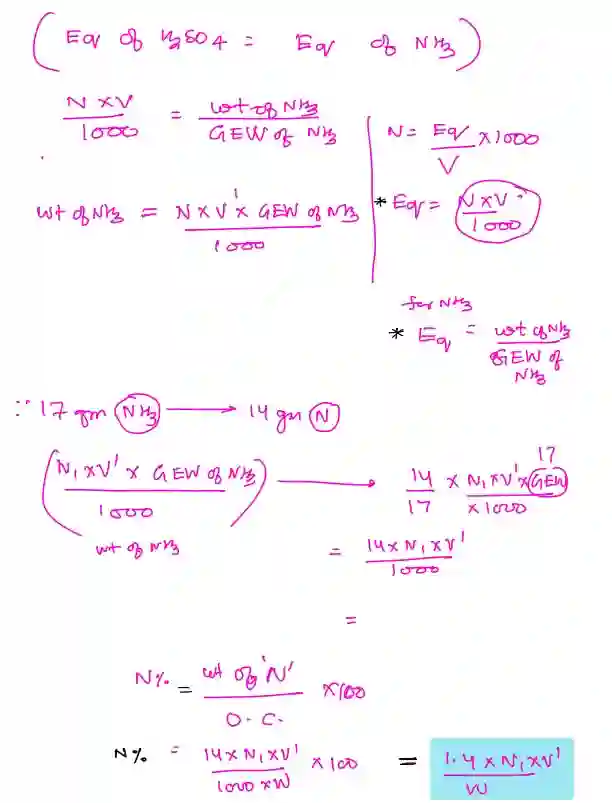 (Eq of H2SO4 = Eq of NH3)
N×V/1000 = wt of NH3/GEW of NH3
N = Eq/V ×1000
wt of NH3 = N×V'× GEW of NH3/1000
* Eq = N×V/1000
for NH3
* Eq = wt of NH3/GEW of NH3
∵ 17 gm NH3 → 14 gm N
(N1×V' × GEW of NH3/1000) → 14/17 × N1×V'×GEW/×1000
17
wt of NH3
= 14×N1×V'/1000
=
N% = wt of 'N'/O.C. ×100
N% = 14×N1×V'/1000×W ×100 = 1.4×N1×V'/W